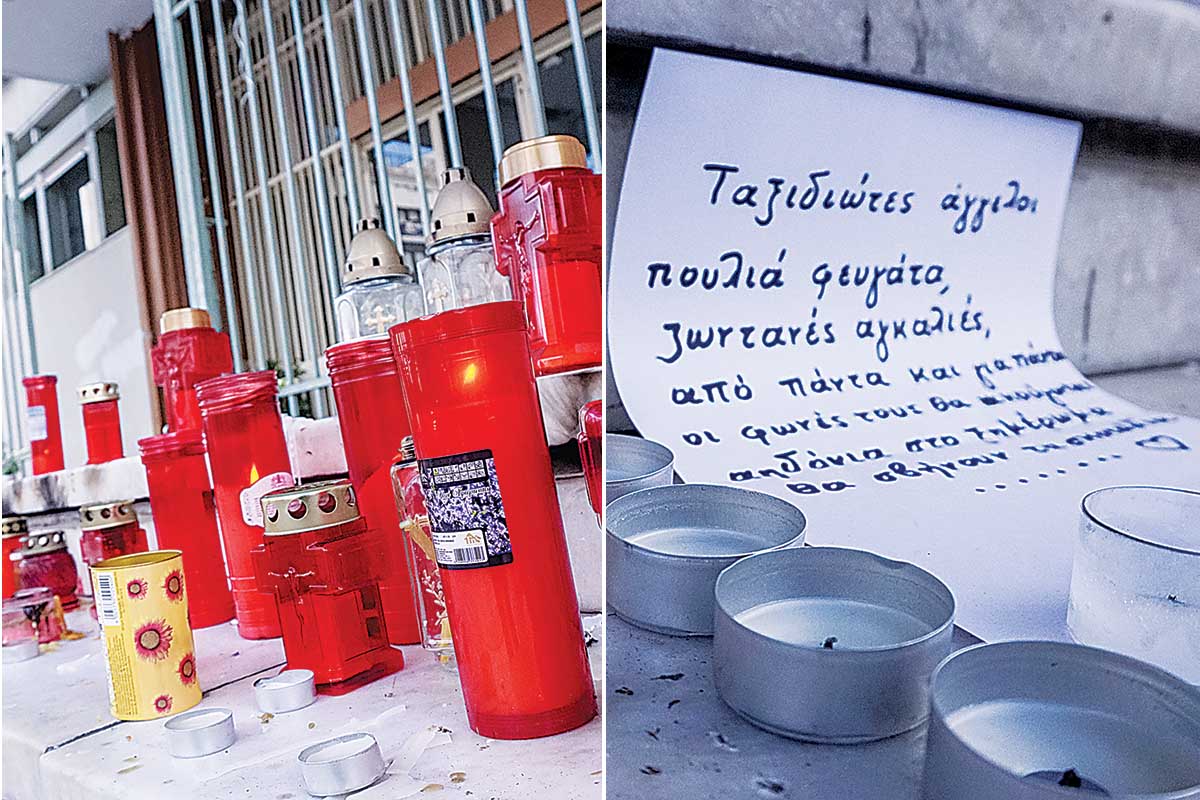 Ταξιδιώτες άγγελοι
πουλιά φευγάτα,
ζωντανές αγκαλιές,
από πάντα και για πάντα
οι φωνές τους θα ακούγονται
αηδόνια στο ξημέρωμα
θα σβήνουν τη